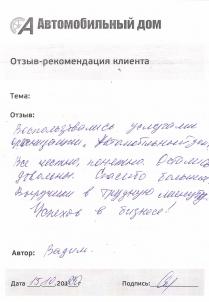 Автомобильный дом
Отзыв-рекомендация клиента
Тема:
Отзыв:
Воспользовались услугами
организации "Автомобильный дом".
Все честно, понятно. Остались
довольны. Спасибо большое
выручили в трудную минуту.
Успехов в бизнесе!
Автор: Вадим.
Дата 15.10. Подпись: